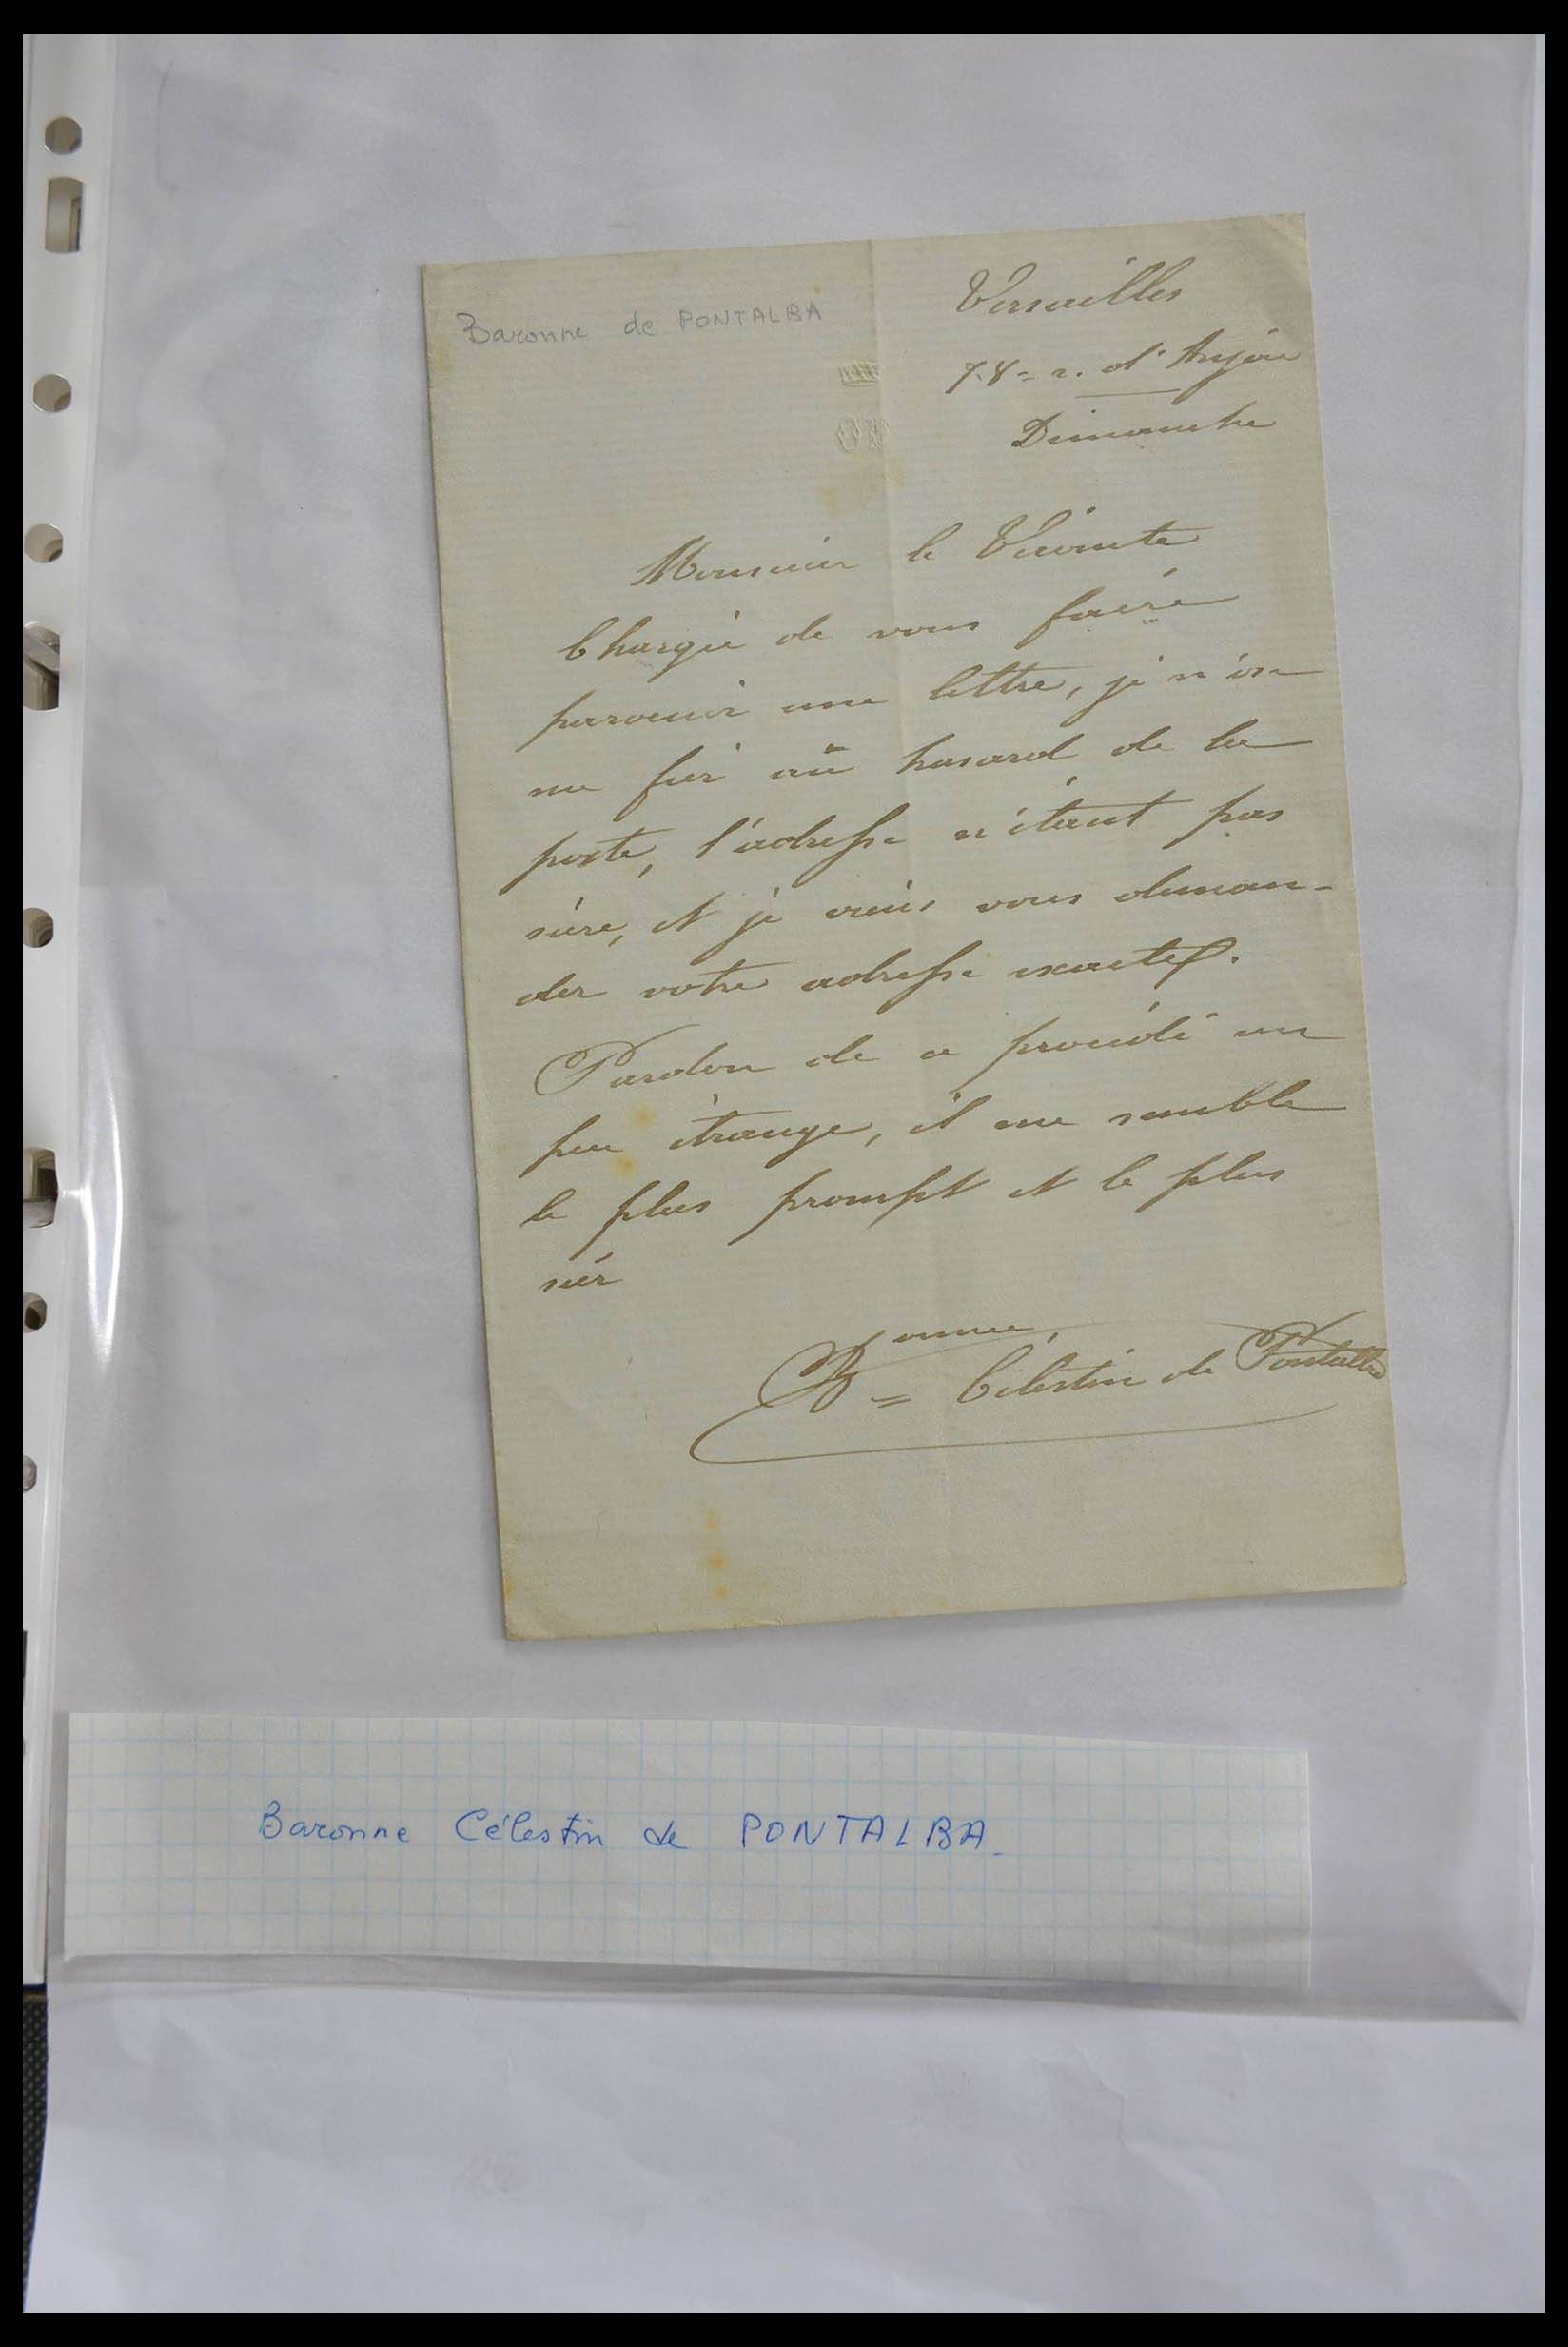 Baronne de PONTALBA
Versailles
78 = r. d'Anjou
Dimanche
Monsieur le Vicomte
Chargée de vous faire
parvenir une lettre, je n'ose
me fier au hasard de la
poste, l'adresse n'étant pas
sûre, et je viens vous deman-
der votre adresse exacte.
Pardon de ce procédé un
peu étrange, il me semble
le plus prompt et le plus
sûr
Bonne = Célestin de Pontalba
Baronne Célestin de PONTALBA.